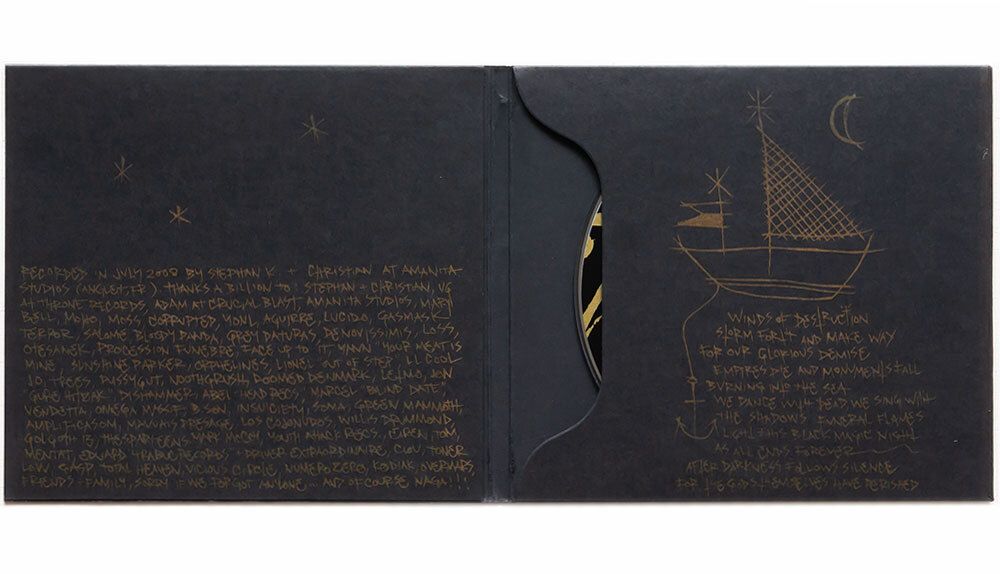 RECORDED IN JULY 2008 BY STEPHAN K. + CHRISTIAN AT AMANITA
STUDIOS (ANGLET, FR). THANKS A BILLION TO: STEPHAN + CHRISTIAN,
AT THRONE RECORDS, ADAM AT CRUCIAL BLAST AMANITA STUDIOS, MARY
BELL, MOHO, MOSS, CORRUPTED, YONL, AGUIRRE, LUCIDA, GASMASK
TERROR, SALOME, BLOODY PANDA, GREY DATURAS, DE NOVISSIMIS, LOSS,
OTESANEK, PROCESSION FUNEBRE, FACE UP TO IT, YANN "YOUR MEAT IS
MINE", SUNSHINE PARKER, ORPHELINES, LIONEL "OUT OF STEP", LL COOL
JO, TREES, PUSSYGUT, NOOTHGRUSH, DOOMED DENMARK, JON
DISHAMMER, ABEL "HEAD RECS", MARCEL "BLIND DATE",
VENDETTA, OMEGA MASSIF, B.SON, INSUICIETY, SOMA, GREEN MAMMOTH,
AMPLIFICASON, MAUVAIS PRESAGE, LOS COJONUDOS, WILLIS DRUMMOND,
MARK MCCOY YOUTH ATTACK RECS, TOM
MENTAT, EDWARD TRABUC RECORDS + DRIVER EXTRAORDINAIRE, CLOU, TONER
LOW, GASP, TOTAL HEAVEN, VICIOUS CIRCLE, NUMEROZERO, KODIAK, OVERMARS,
FRIENDS + FAMILY, SORRY IF WE FORGOT ANYONE... AND OF COURSE NAGA!!!
WINDS OF DESTRUCTION
STORM FORTH AND MAKE WAY
FOR OUR GLORIOUS DEMISE
EMPIRES DIE AND MONUMENTS FALL
BURNING INTO THE SEA
WE DANCE WITH DEAD WE SING WITH
THE SHADOWS FUNERAL FLAMES
LIGHT THIS BLACK MAGIC NIGHT
AS ALL ENDS FOREVER
AFTER DARKNESS FOLLOWS SILENCE
FOR THE GODS THEMSELVES HAVE PERISHED